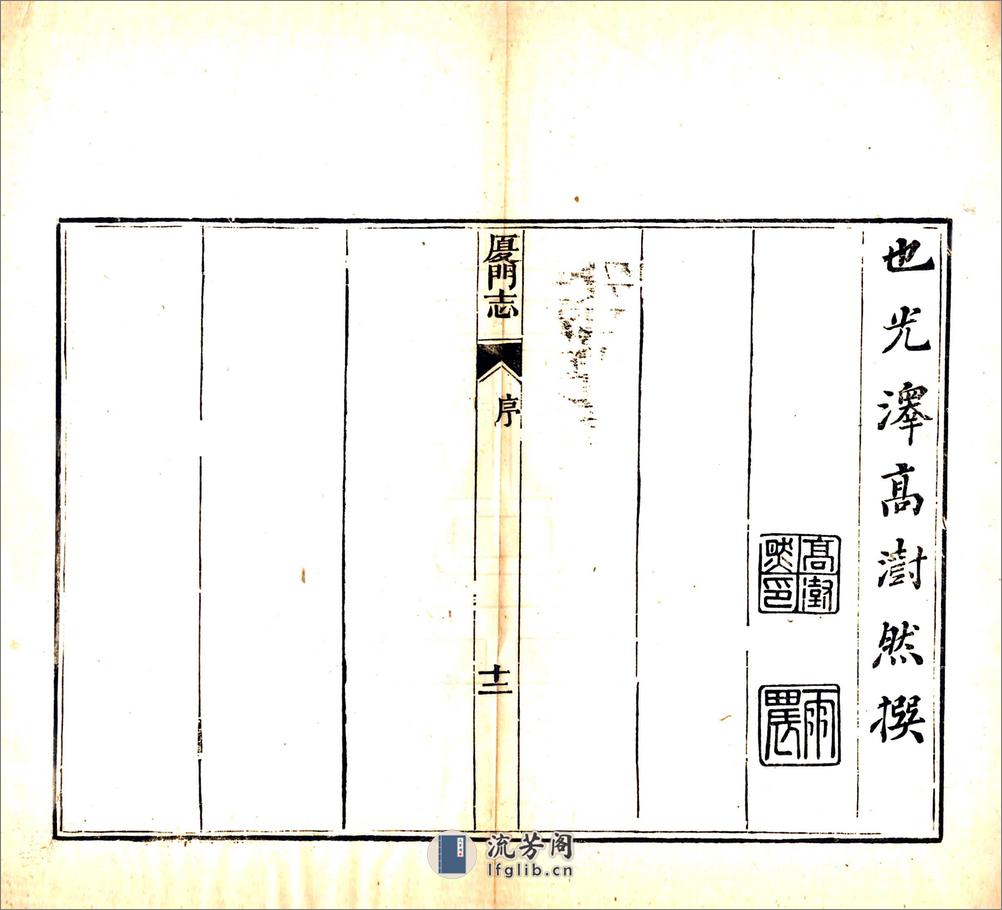 也光澤高澍然撰
高澍然印
雨農
厦門志
序
十二
流芳阁
lfglib.cn